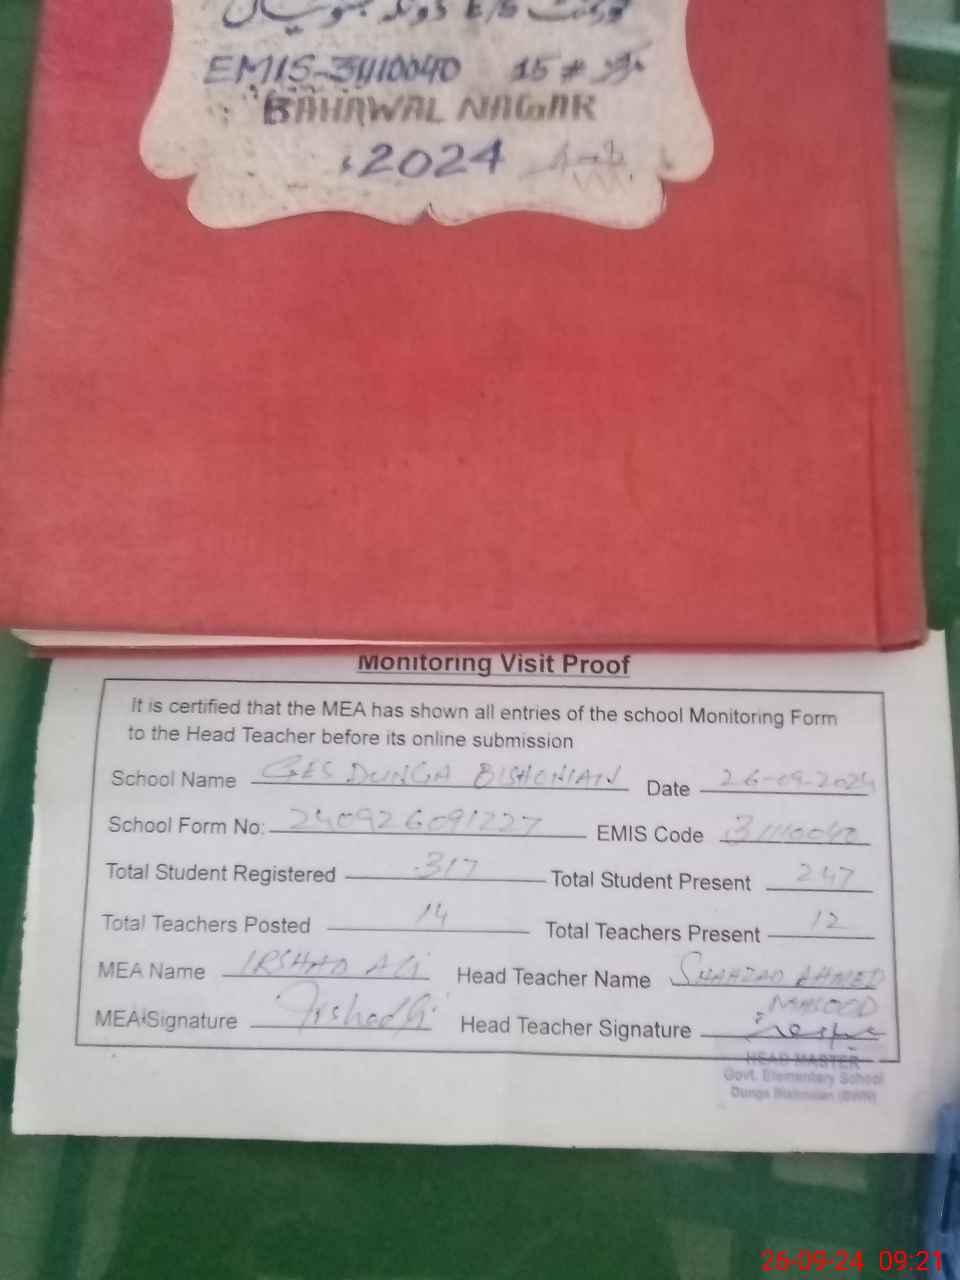 گورنمنٹ E/S ڈونگہ بشنیاں
EMIS-31110040 15 #
BAHAWAL NAGAR
2024
Monitoring Visit Proof
It is certified that the MEA has shown all entries of the school Monitoring Form
to the Head Teacher before its online submission
School Name GES DUNGA BISHONIAN Date 26-09-2024
School Form No: 240926091227 EMIS Code 31110040
Total Student Registered 317 Total Student Present 247
Total Teachers Posted 14 Total Teachers Present 12
MEA Name IRSHAD ALI Head Teacher Name SHAHZAD AHMED
MASOOD
MEA Signature Irshad Ali Head Teacher Signature
HEAD MASTER
Govt. Elementary School
Dunga Bishnian (BWN)
26-09-24 09:21